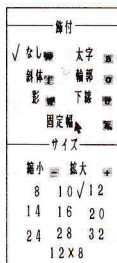 飾付
√なし 太字
斜体 輪郭
影 下線
固定幅
サイズ
縮小 − 拡大 +
8 10 √12
14 16 20
24 28 32
12×8